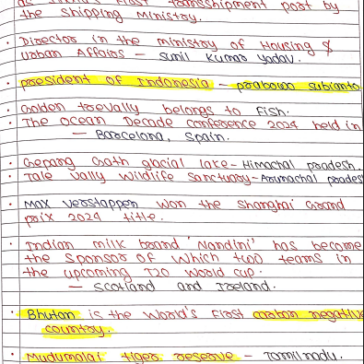 as India's First transshipment port by
the shipping Ministry.
• Director in the ministry of Housing &
Urban Affairs - Sunil Kumar Yadav.
• President of Indonesia - prabowo subianto
• Golden trevally belongs to Fish.
• The Ocean Decade conference 2024 held in
- Barcelona, Spain.
• Gepang Gath glacial lake - Himachal pradesh
• Tale vally wildlife sanctuary - Arunachal prades
• Max verstappen won the shanghai Grand
prix 2024 title.
• Indian milk brand 'Nandini' has become
the sponsor of which two teams in
the upcoming T20 world cup.
- Scotland and Ireland.
• Bhutan is the world's First carbon negative
country.
• Mudumalai tiger reserve - Tamil nadu.